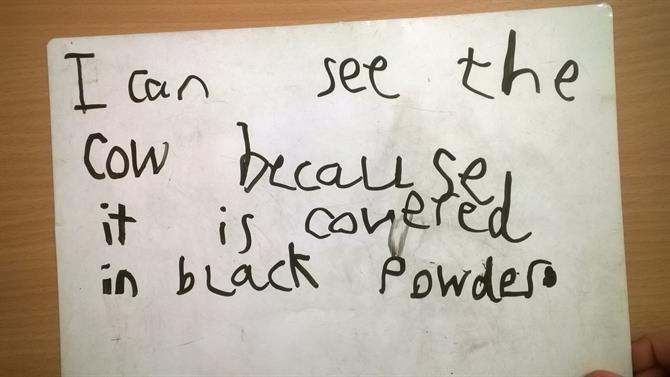 I can see the
cow because
it is covered
in black Powder.